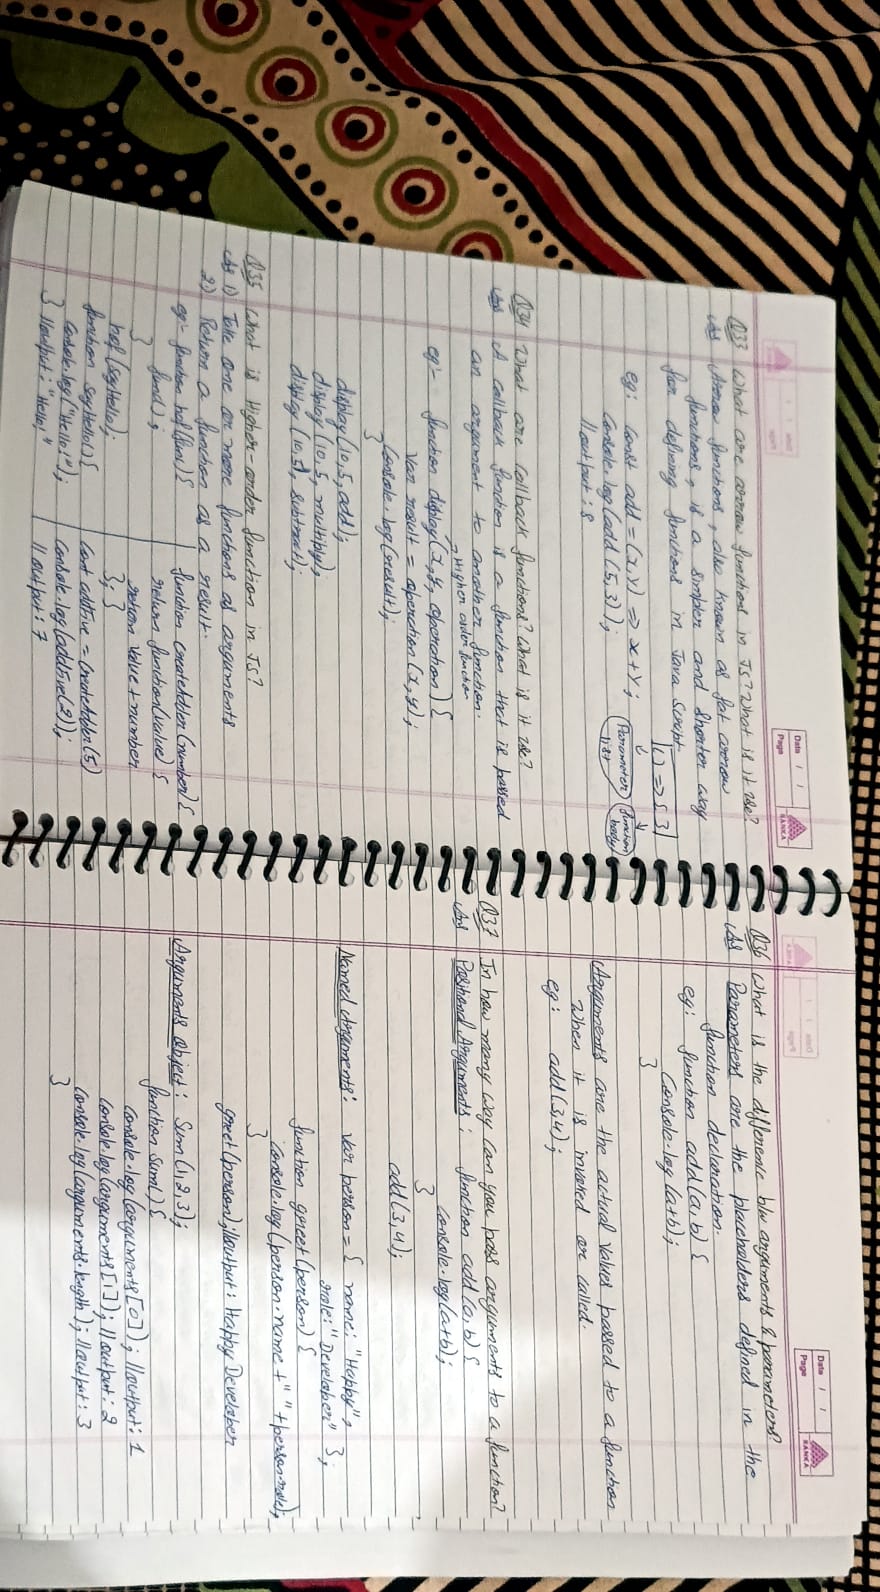 Date / /
Page
RANKA
Q33 What are arrow functions in JS? What is it use?
Ans Arrow functions, also known as fat arrow
functions, is a simpler and shorter way
for defining functions in Java Script.
() => { }
Parameter list
function body
eg: const add = (x,y) => x+y;
console.log(add(5,3));
//output: 8
Q34 What are callback functions? What is it use?
Ans A callback function is a function that is passed
an argument to another function.
Higher order function
eg:- function display(x, y, operation) {
var result = operation(x,y);
console.log(result);
}
display(10,5,add);
display(10,5,multiply);
display(10,5, subtract);
Q35 What is Higher-order function in JS?
Ans 1) Take one or more functions as arguments
2) Return a function as a result.
eg:- function hof(func) {
func();
}
hof(sayHello);
function sayHello() {
console.log("Hello!");
} //output: "Hello!"
function createAdder(number) {
return function(value) {
return value + number
}; }
const addFive = createAdder(5)
console.log(addFive(2));
//output: 7
Date / /
Page
RANKA
Q36 What is the difference b/w arguments & parameters?
Ans Parameters are the placeholders defined in the
function declaration.
eg: function add(a, b) {
console.log(a+b);
}
Arguments are the actual values passed to a function
when it is invoked or called.
eg: add(3,4);
Q37 In how many way can you pass arguments to a function?
Ans Positional Arguments: function add(a, b) {
console.log(a+b);
}
add(3,4);
Named Arguments: var person = { name: "Happy",
role: "Developer" };
function greet(person) {
console.log(person.name + " " + person.role);
}
greet(person); //output: Happy Developer
Arguments Object: Sum(1,2,3);
function sum() {
console.log(arguments[0]); //output: 1
console.log(arguments[1]); //output: 2
console.log(arguments.length); //output: 3
}